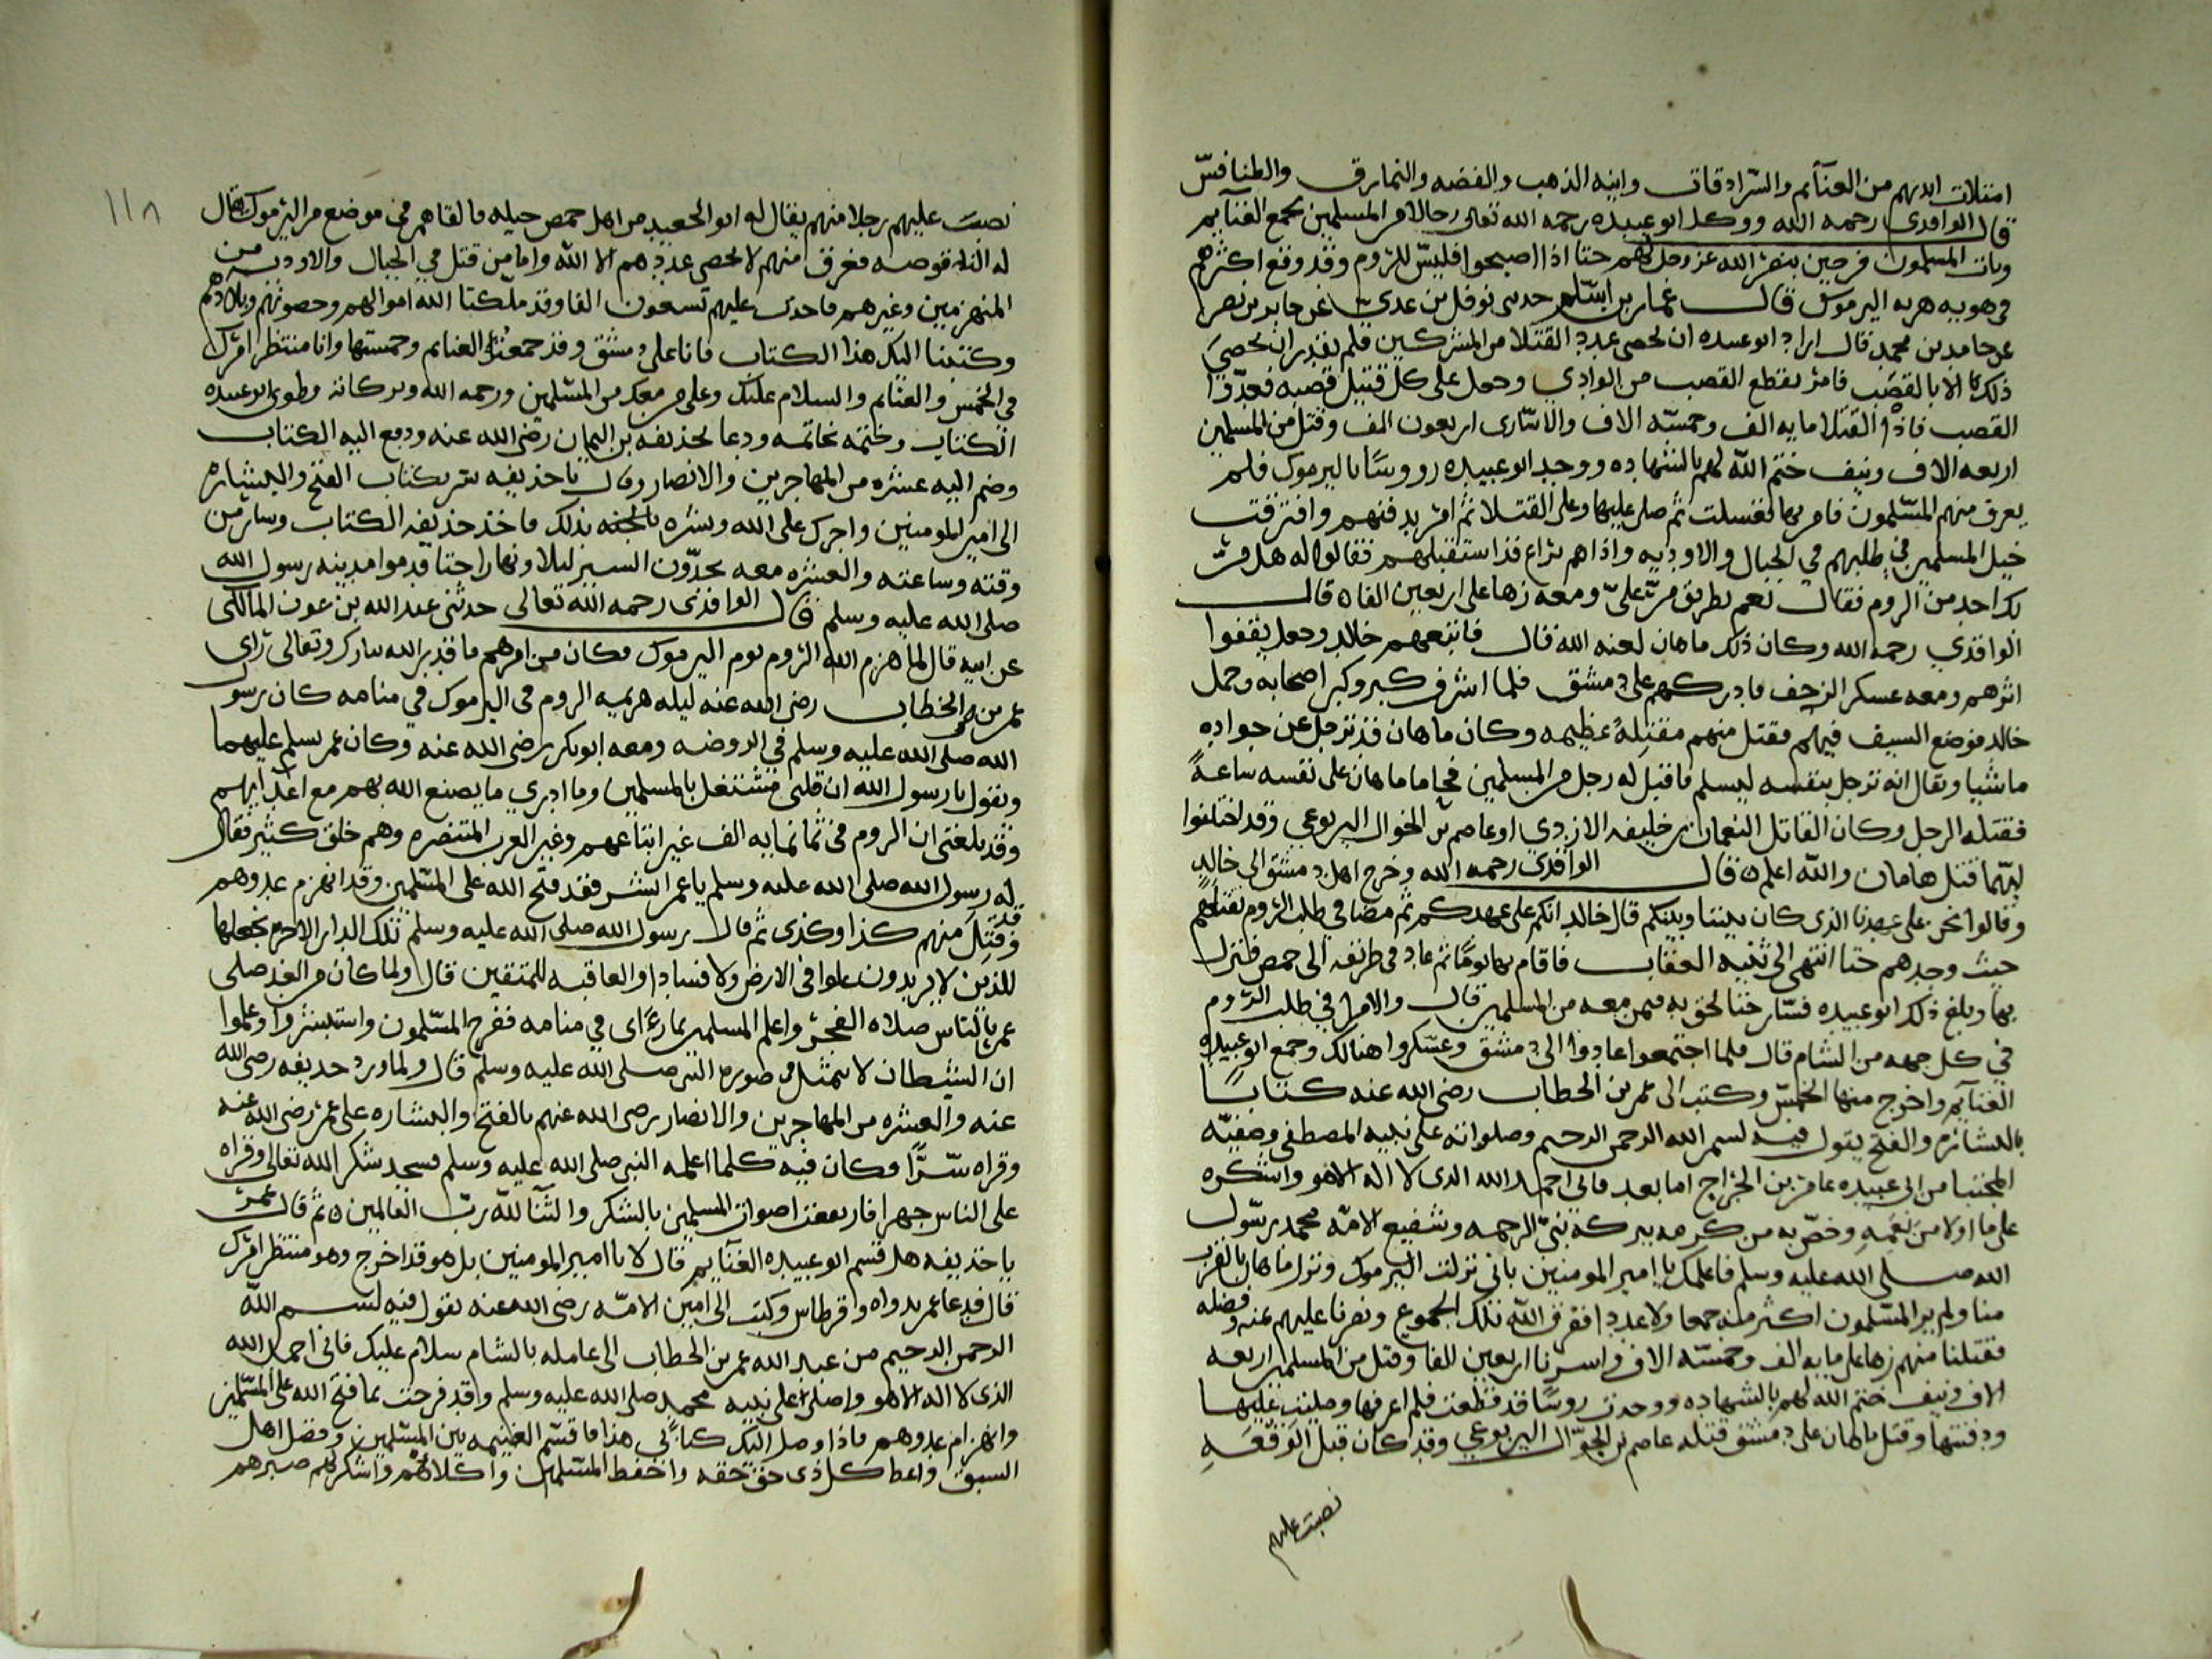 امتلات ايديهم من الغنآيم والسرادقات وابنيه الذهب والفضه والنمارق والطنافس
قال الواقدي رحمه الله ووكل ابو عبيده رحمه الله تعالى رجالا من المسلمين بجمع الغنآيم
وبات المسلمون فرحين بنصر الله عز وجل لهم حتا اذا اصبحوا فليس للروم وقد وقع اكثرهم
في هويه هربه اليرموك قال عمار بن اسلم حدثني نوفل بن عدي عن جابر بن نصر
عن حامد بن محمد قال اراد ابو عبيده ان يحصى عدد القتلا من المشركين فلم يقدر ان يحصي
ذلك الا بالقصب فامر بقطع القصب من الوادي وجعل على كل قتيل قصبه فعدوا
القصب فاذا القتلا مايه الف وخمسه الاف والاسارى اربعون الف وقتل من المسلمين
اربعه الاف ونيف ختم الله لهم بالشهاده ووجد ابو عبيده رووسًا باليرموك فلم
يعرف منهم المسلمون فامر بها فغسلت ثم صلى عليها وعلى القتلا ثم امر بدفنهم وافترقت
خيل المسلمين في طلبهم في الجبال والاوديه واذا هم براع قد استقبلهم فقالوا له هل مر
بك احد من الروم فقال نعم بطريق مر علي ومعه زها على اربعين الفا ٥ قال
الواقدي رحمه الله وكان ذلك ماهان لعنه الله قال فاتبعهم خالد وجعل يقفوا
اثرهم ومعه عسكر الزحف فادركهم على دمشق فلما اشرف كبر وكبر اصحابه وحمل
خالد فوضع السيف فيهم فقتل منهم مقتلة عظيمه وكان ماهان قد ترجل عن جواده
ماشيا ويقال انه ترجل بنفسه ليسلم فاقبل له رجل من المسلمين فحاما ماهان على نفسه ساعةً
فقتله الرجل وكان القاتل النعمان بن خليفه الازدي او عاصم بن الخوال اليربوعي وقد اختلفوا
ايهما قتل هامان والله اعلم ٥ قال الواقدي رحمه الله وخرج اهل دمشق الى خالد
وقالوا نحن على عهدنا الذي كان بيننا وبينكم قال خالد انكم على عهدكم ثم مضا في طلب الروم يقتلهم
حيث وجدهم حتا انتهى الى ثنيه العقاب فاقام بها يومًا ثم عاد في طريقه الى حمص فنزل
بها وبلغ ذلك ابو عبيده فسار حتا لحق به فيمن معه من المسلمين قال والامرا في طلب الروم
في كل جهه من الشام قال فلما اجتمعوا عادوا الى دمشق وعسكروا هنالك وجمع ابو عبيده
الغنآيم واخرج منها الخمس وكتب الى عمر بن الخطاب رضى الله عنه كتابًا
بالبشاره والفتح يقول فيه بسم الله الرحمن الرحيم وصلواته على نبيه المصطفى وصفيه
المجتبا من ابي عبيده عامر بن الجراح اما بعد فاني احمد الله الذي لا اله الا هو واشكره
على ما اولا من نعمه وخص به من كرمه ببركة نبي الرحمه وشفيع الامه محمد رسول
الله صلى الله عليه وسلم فاعلمك يا امير المومنين باني نزلت اليرموك ونزل ماهان بالقرب
منا ولم ير المسلمون اكثر منه جمعا ولا عددا ففرق الله تلك الجموع ونصرنا عليهم بمنه وفضله
فقتلنا منهم زها على مايه الف وخمسه الاف واسرنا اربعين الفا وقتل من المسلمين اربعه
الاف ونيف ختم الله لهم بالشهاده ووجدت روسًا قد قطعت فلم اعرفها وصليت عليها
ودفنتها وقتل ماهان على دمشق قتله عاصم بن الجوال اليربوعي وقد كان قبل الوقعه
نصبت عليهم
١١٨
نصبت عليهم رجلا منهم يقال له ابو الجعيد من اهل حمص حيله فالقاهم في موضع من اليرموك يقال
له الناقوصه فغرق منهم لا يحصى عددهم الا الله واما من قتل في الجبال والاوديه من
المنهزمين وغيرهم فاحدى عليهم تسعون الفا وقد ملكنا الله اموالهم وحصونهم وبلادهم
وكتبنا اليك هذا الكتاب فانا على دمشق وقد جمعت الغنايم وخمستها وانا منتظر امرك
في الخمس والغنايم والسلام عليك وعلى من معك من المسلمين ورحمه الله وبركاته وطوى ابو عبيده
الكتاب وختمه بخاتمه ودعا بحذيفه بن اليمان رضى الله عنه ودفع اليه الكتاب
وضم اليه عشره من المهاجرين والانصار وقال يا حذيفه سر بكتاب الفتح والبشاره
الى امير المومنين واجرك على الله وبشره بالجنه بذلك فاخذ حذيفه الكتاب وسار من
وقته وساعته والعشره معه يجدون السير ليلا ونهارا حتا قدموا مدينه رسول الله
صلى الله عليه وسلم قال الواقدى رحمه الله تعالى حدثني عبد الله بن عون المالكي
عن ابيه قال لما هزم الله الروم يوم اليرموك فكان من امرهم ما قدر الله تبارك وتعالى راى
عمر بن الخطاب رضى الله عنه ليله هزيمه الروم في اليرموك في منامه كان رسول
الله صلى الله عليه وسلم في الروضه ومعه ابو بكر رضى الله عنه وكان عمر يسلم عليهما
ويقول يا رسول الله ان قلبي مشتغل بالمسلمين وما ادري ما يصنع الله بهم مع اعدايهم
وقد بلغني ان الروم في ثمانمايه الف غير اتباعهم وغير العرب المتنصره وهم خلق كثير فقال
له رسول الله صلى الله عليه وسلم يا عمر ابشر فقد فتح الله على المسلمين وقد انهزم عدوهم
وقتل منهم كذا وكذى ثم قال رسول الله صلى الله عليه وسلم تلك الدار الاخره نجعلها
للذين لا يريدون علوا في الارض ولا فسادا والعاقبه للمتقين قال ولما كان من الغد صلى
عمر بالناس صلاه الفجر واعلم المسلمين بما راى في منامه ففرح المسلمون واستبشروا وعلموا
ان الشيطان لا يتمثل في صوره النبي صلى الله عليه وسلم قال ولما ورد حذيفه رضى الله
عنه والعشره من المهاجرين والانصار رضى الله عنهم بالفتح والبشاره على عمر رضى الله عنه
وقراه سرًا فكان فيه كلما اعلمه النبي صلى الله عليه وسلم فسجد شكر الله تعالى وقراه
على الناس جهرا فارتفعت اصوات المسلمين بالشكر والثنا لله رب العالمين ٥ ثم قال عمر
يا حذيفه هل قسم ابو عبيده الغنايم قال لا يا امير المومنين بل هو قد اخرج وهو منتظر امرك
قال فدعا عمر بدواه وقرطاس وكتب الى امين الامه رضى الله عنه يقول فيه بسم الله
الرحمن الرحيم من عبد الله عمر بن الخطاب الى عامله بالشام سلام عليك فاني احمد الله
الذى لا اله الا هو واصلى على نبيه محمد صلى الله عليه وسلم وقد فرحت بما فتح الله على المسلمين
وانهزام عدوهم فاذا وصل اليك كتابي هذا فاقسم الغنيمه بين المسلمين وفضل اهل
السبق واعط كل ذى حق حقه واحفظ المسلمين واكلاهم واشكر لهم صبرهم